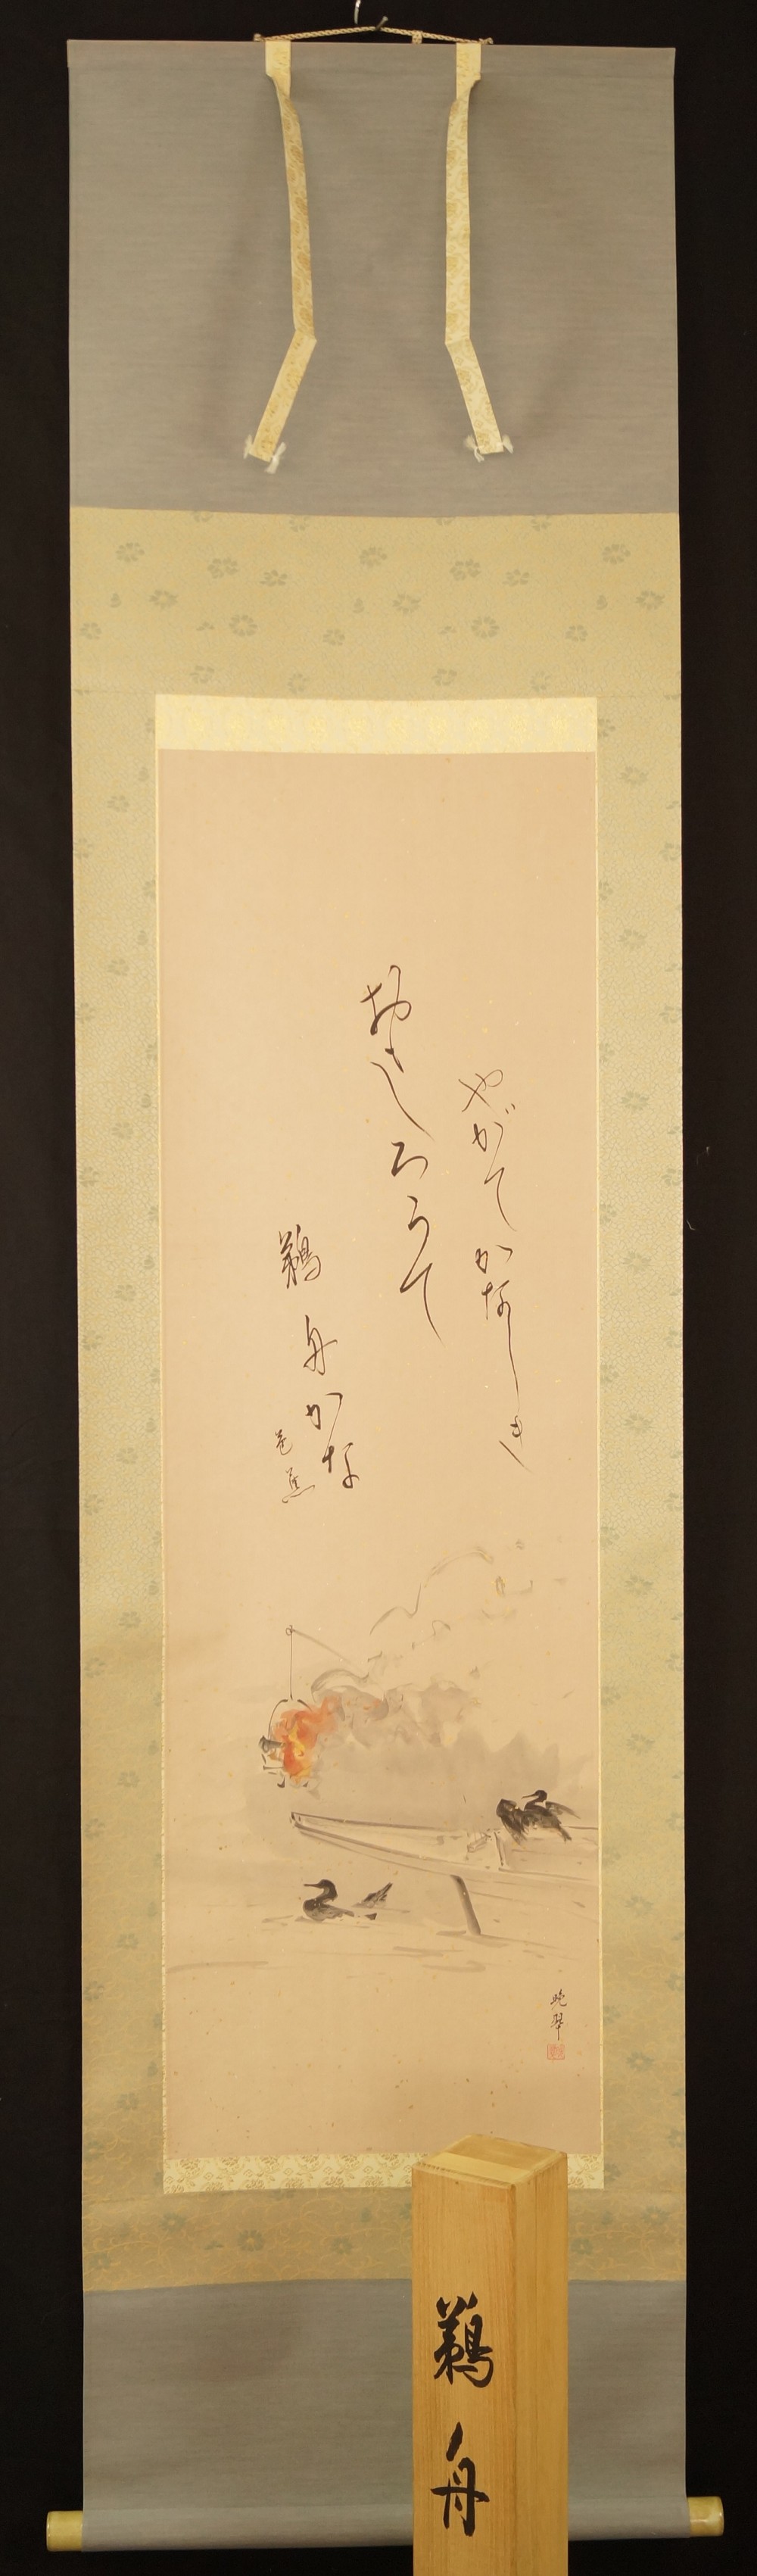 おもしろうて
やがてかなしき
鵜舟かな
芭蕉
晩翠
鵜舟